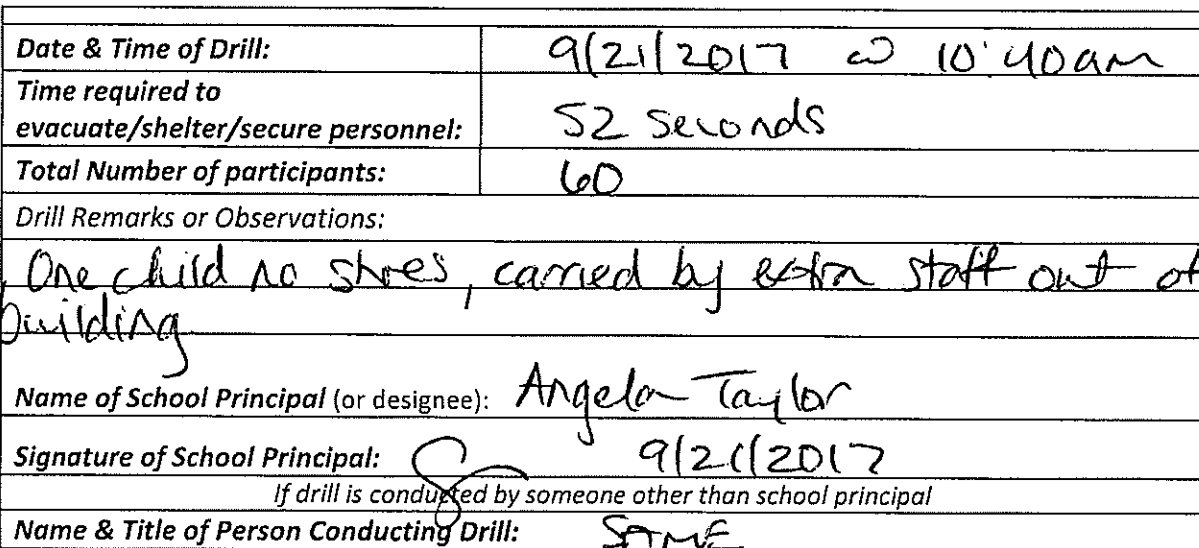 Date & Time of Drill: 9/21/2017 @ 10:40am
Time required to
evacuate/shelter/secure personnel: 52 seconds
Total Number of participants: 60
Drill Remarks or Observations:
One child no shoes, carried by extra staff out of
building
Name of School Principal (or designee): Angela Taylor
Signature of School Principal: 9/21/2017
If drill is conducted by someone other than school principal
Name & Title of Person Conducting Drill: SAME